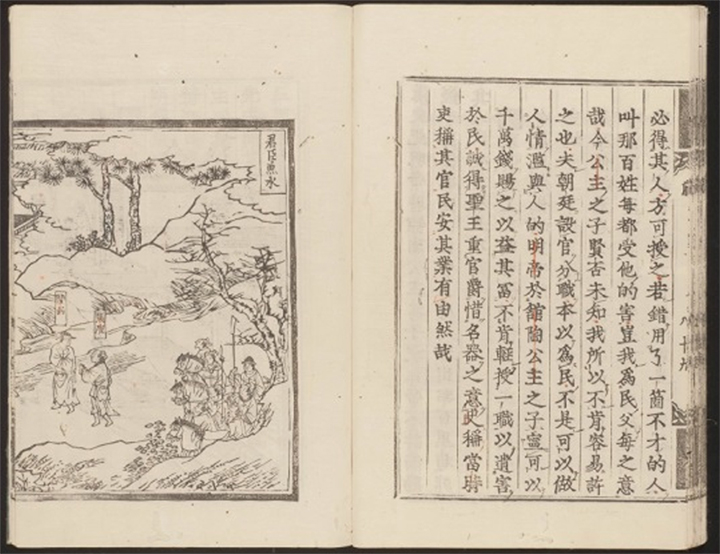 必得其人方可授之若錯用了一箇不才的人
叫那百姓每都受他的害豈我爲民父每之意
哉今公主之子賢否未知我所以不肯容易許
之也夫朝廷設官分職本以爲民不是可以做
人情濫與人的明帝於館陶公主之子寧可以
千萬錢賜之以益其冨不肯輕授一職以遺害
於民誠得聖王重官爵惜名器之意史稱當時
吏稱其官民安其業有由然哉
君臣魚水